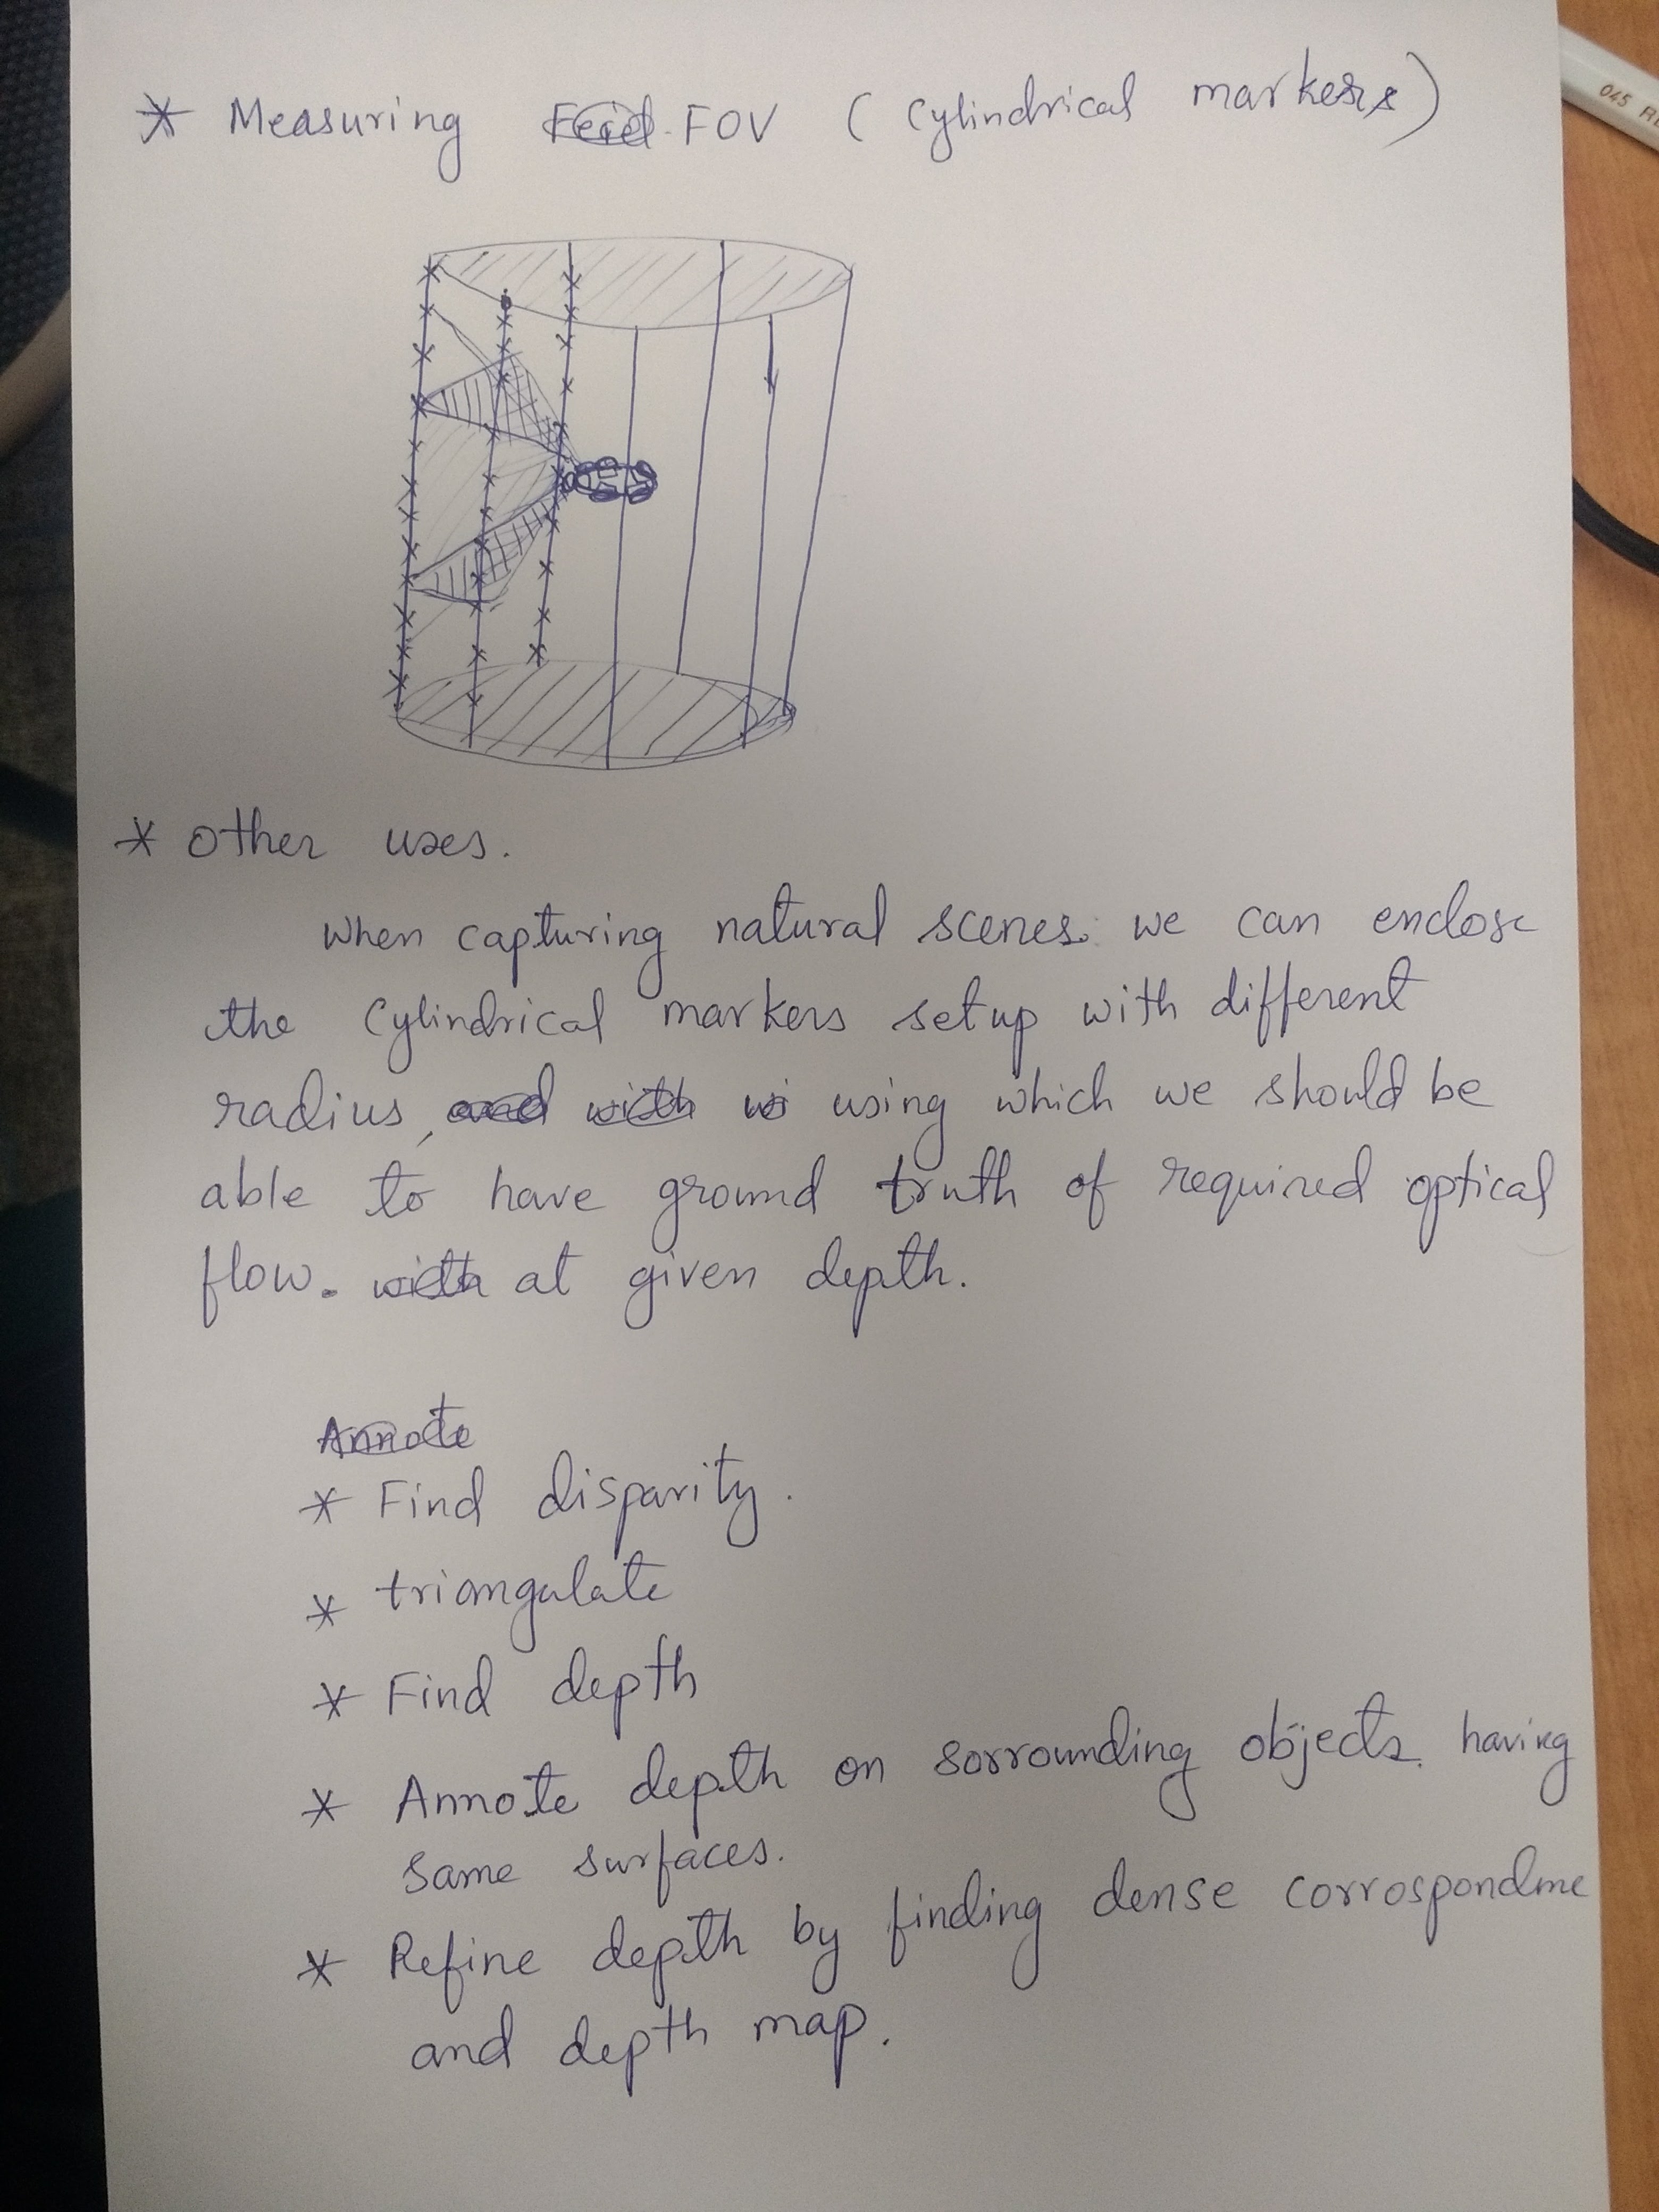 * Measuring FOV ( Cylindrical markers )
045 RE
* other uses.
When capturing natural scenes we can enclose
the Cylindrical markers setup with different
radius, using which we should be
able to have ground truth of required optical
flow. at given depth.
Annote
* Find disparity.
* triangulate
* Find depth
* Annote depth on sorrounding objects having
same surfaces.
* Refine depth by finding dense
and depth map.